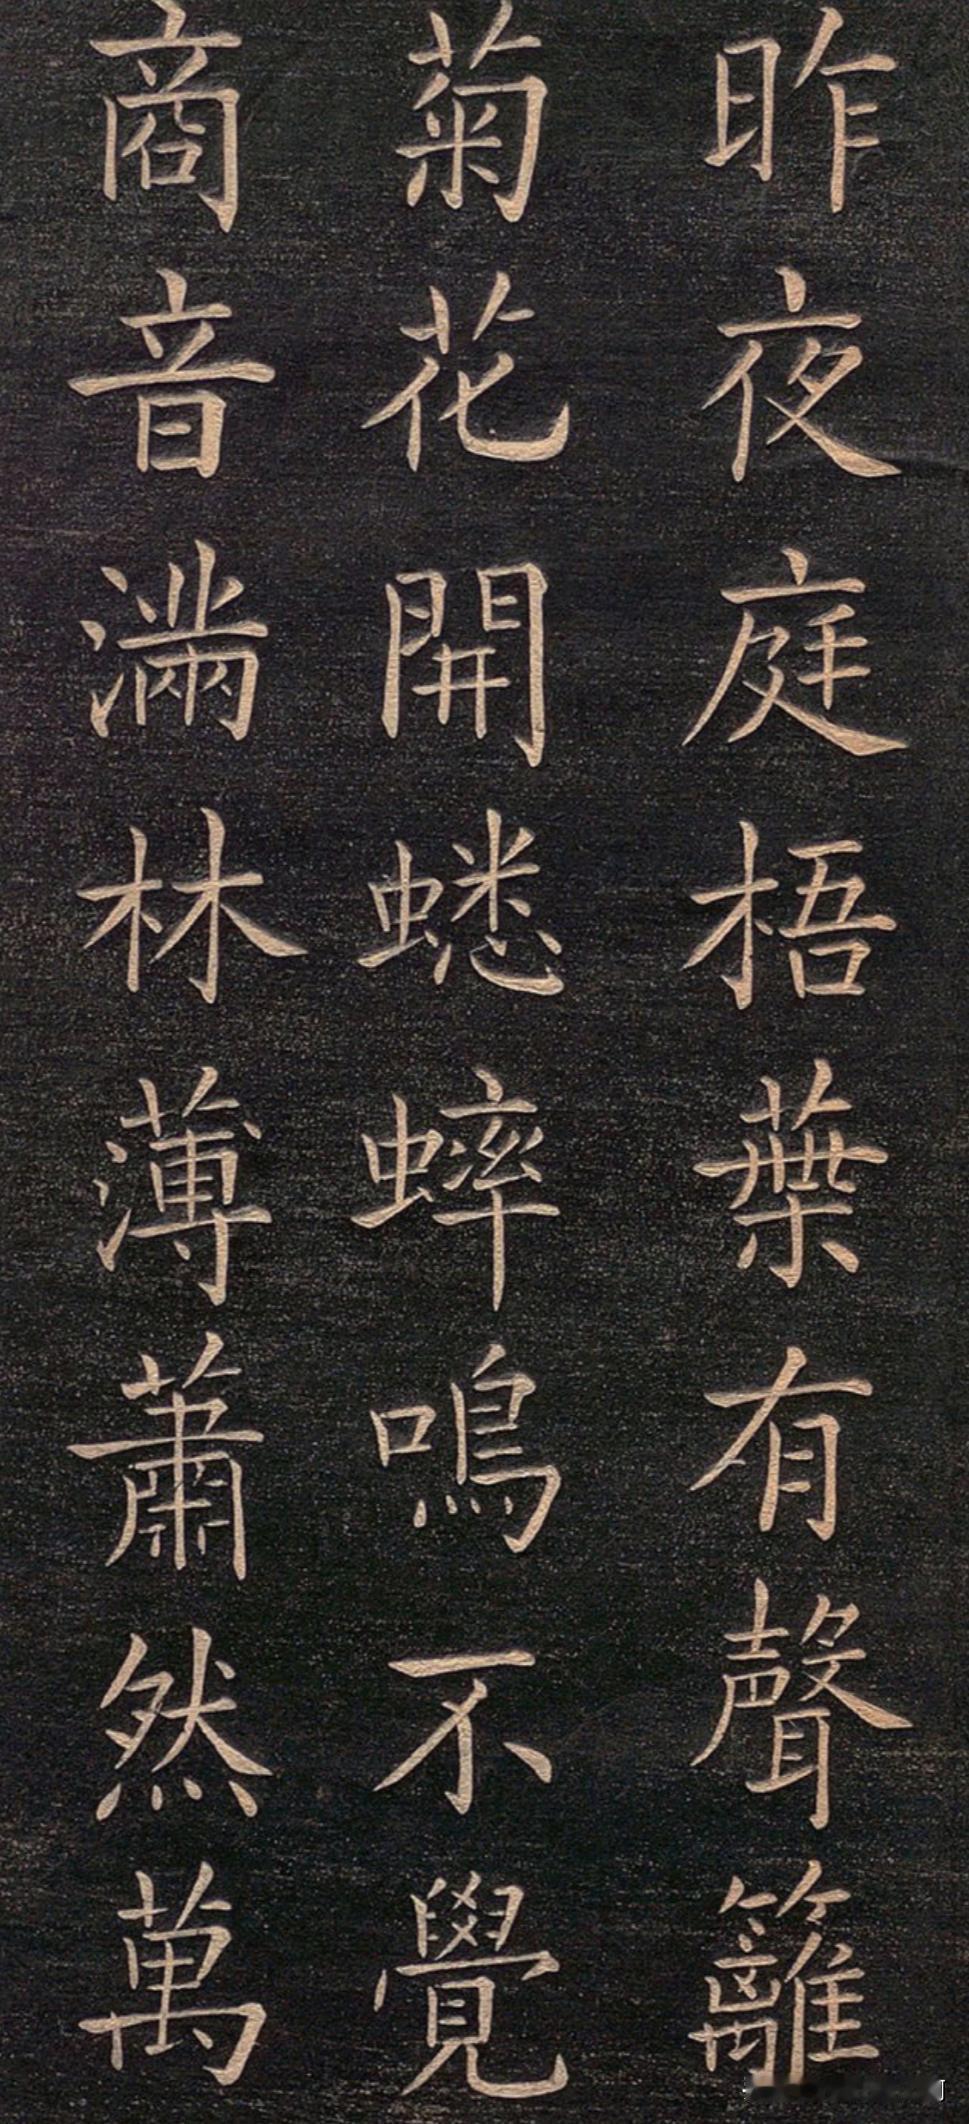 昨夜庭梧葉有聲籬
菊花開蟋蟀鳴不覺
商音滿林薄蕭然萬